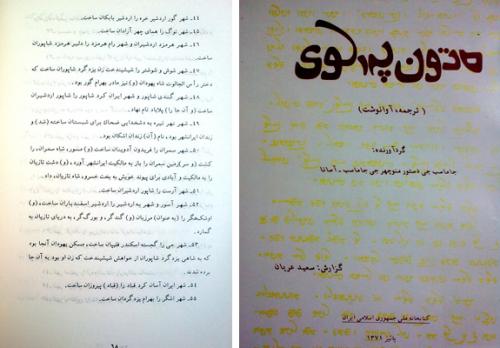 ۴۴ــ شهر گور اردشیر خره را اردشیر بابکان ساخت.
۴۵ــ شهر توگ را همای چهر آزادان ساخت.
۴۶ــ شهر هرمزد اردشیران و شهر رام هرمزد را دلیر هرمزد شاپوران
ساخت.
۴۷ــ شهر شوش و شوشتر را شیشیندخت زن یزدگرد شاپوران ساخت که
دختر رأس الجالوت شاه یهودان (و) نیز مادر بهرام گور بود.
۴۸ــ شهر گندی شاپور و شهر ایران کرد شاپور را شاپور اردشیران
ساخت (و آن جا را) پلاباد نام نهاد.
۴۹ــ شهر نهر تیره به دشخدایی ضحاک برای شبستان ساخته (شد) و
زندان ایرانشهر بود. نام (آن) زندان اشکان بود.
۵۰ــ شهر سمران را فریدون آدوینان ساخت (و) مسور، شاه سمران، را
کشت (و سر)زمین سمران را باز به مالکیت ایرانشهر آورد و دشت تازیان
به مالکیت و آبادی برای پیوند خویش به بخت خسرو شاه تازیان، داد.
۵۱ــ شهر آرست را شاپور اردشیران ساخت.
۵۲ــ شهر آسور و شهر به اردشیر را اردشیر اسفندیاران ساخت، (و)
اوشک هگر را (به عنوان) مرزبان (و) گند گر، و بورگ گر، به دریای تازیان به
گمارد.
۵۳ــ شهر جی را گجسته اسکندر فلیپان ساخت، مسکن یهودان آنجا بود
که به شاهی یزدگرد شاپوران از خواهش شیشیندخت که زن او بود به آن جا
برده شدند.
۵۴ــ شهر ایران آسان کرد قباد را (قباد) پیروزان ساخت.
۵۵ــ شهر اشگر را بهرام یزدگردان ساخت.
۱۸
متون پهلوی
(ترجمه، آوانوشت)
گردآورنده:
جاماسب جی دستور منوچهر جی جاماسب ــ آسانا
گزارش: سعید عریان
کتابخانه ملی جمهوری اسلامی ایران
پائیز ۱۳۷۱